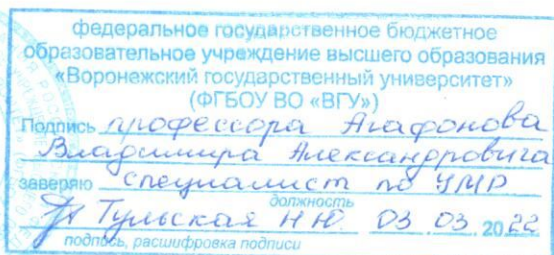 федеральное государственное бюджетное
образовательное учреждение высшего образования
«Воронежский государственный университет»
(ФГБОУ ВО «ВГУ»)
Подпись профессора Агафонова
Владимира Александровича
заверяю специалист по УМР
должность
Тульская Н.Ю. 03 03 2022
подпись, расшифровка подписи